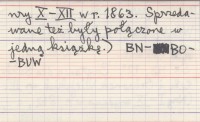 nry X-XII w r. 1863. Sprzeda-
wane też były połączone w
jedną książkę.) BN- BO-
-BUW